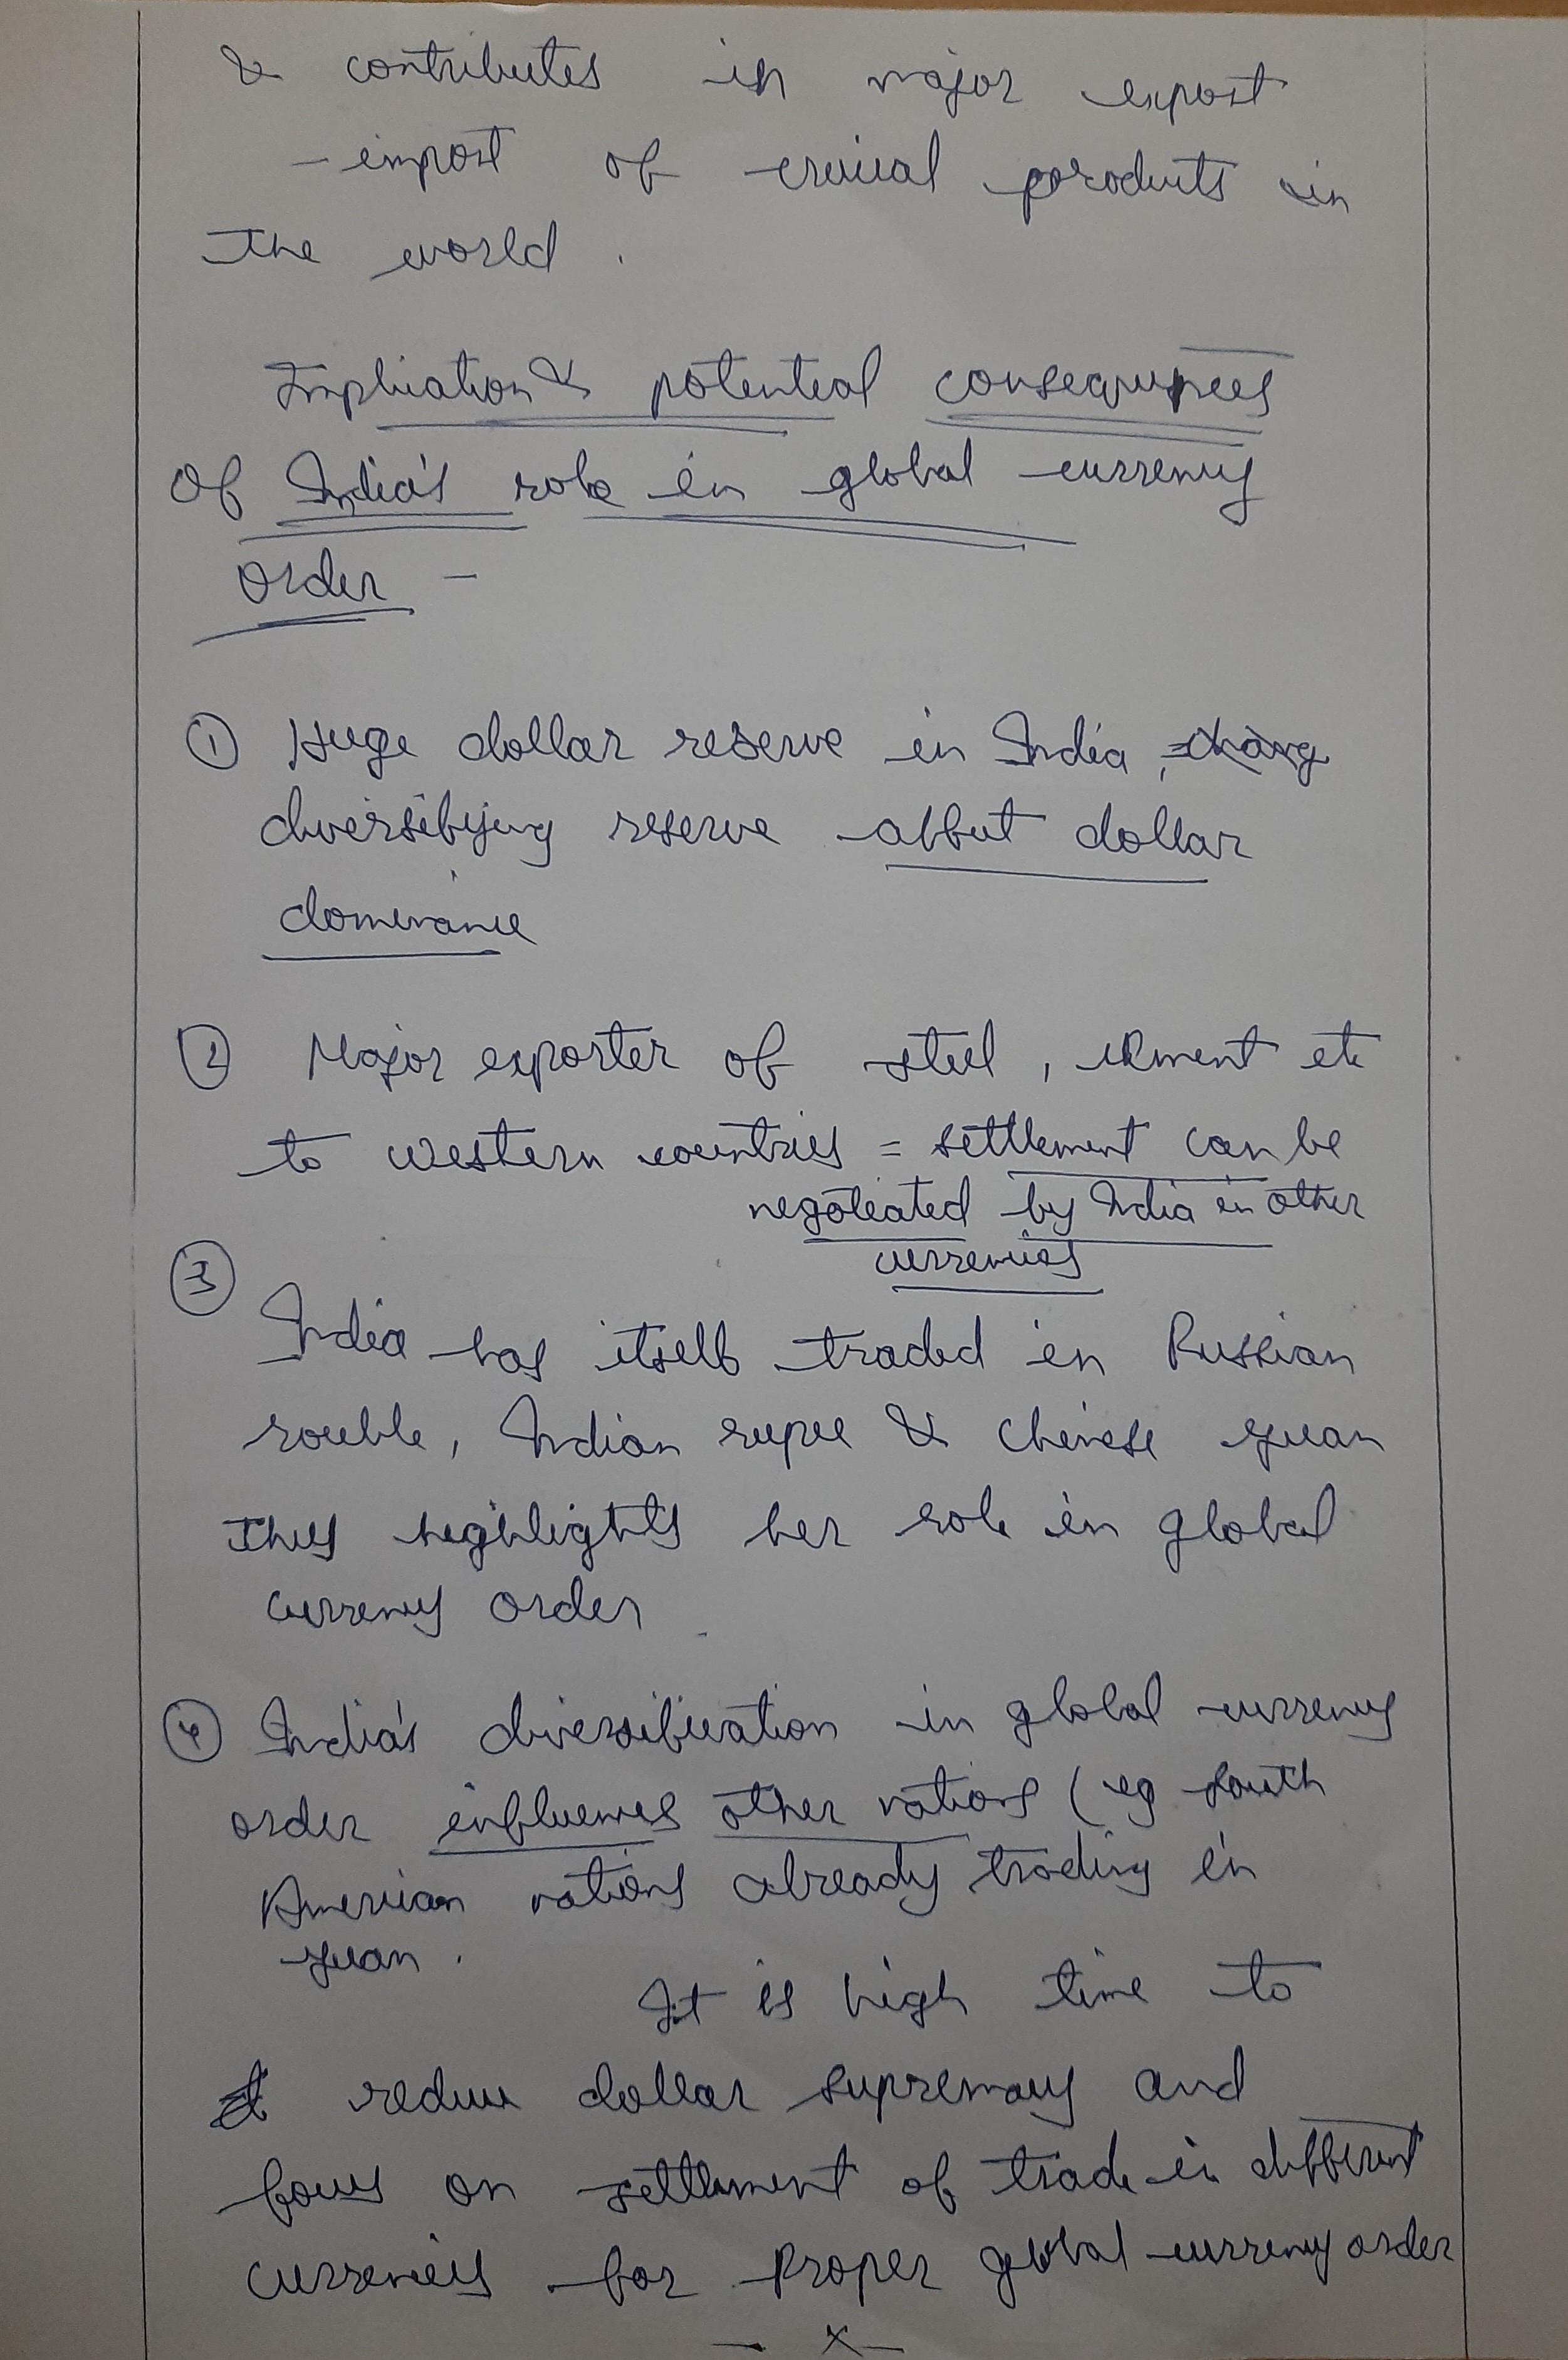 & contributes in major export
- import of crucial products in
the world.
Implication & potential consequences
Of India's role in global currency
Order -
① Huge dollar reserve in India,
diversifying reserve affect dollar
dominance
② Major exporter of steel, cement etc
to western countries = settlement can be
negotiated by India in other
currencies
③
India has itself traded in Russian
rouble, Indian rupee & Chinese yuan
thus highlights her role in global
currency order.
④ India's diversification in global currency
order influences other nations (eg South
American nations already trading in
yuan.
It is high time to
reduce dollar supremacy and
focus on settlement of trade in different
currencies for proper global currency order
— x —